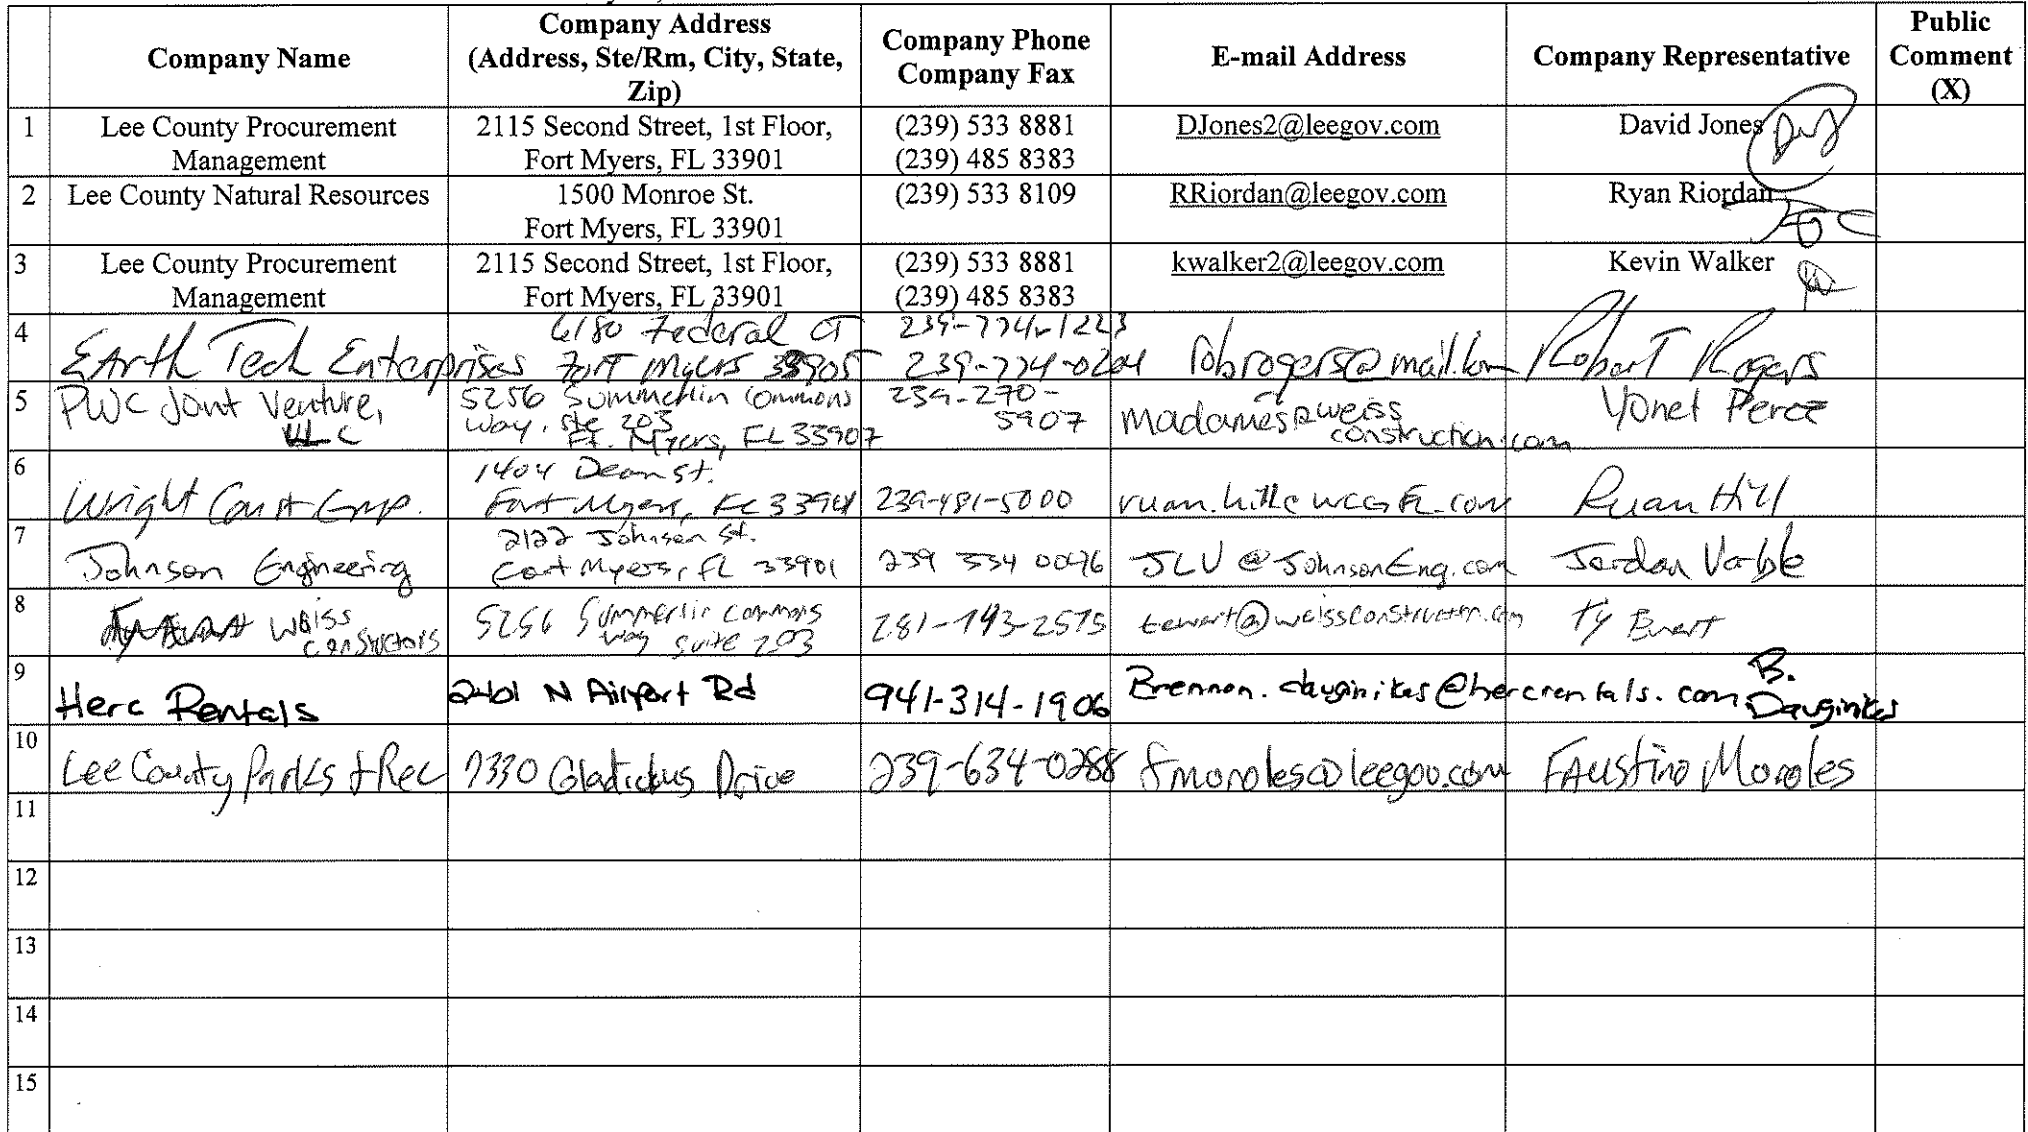 Company Name
Company Address
(Address, Ste/Rm, City, State,
Zip)
Company Phone
Company Fax
E-mail Address
Company Representative
Public
Comment
(X)
1
Lee County Procurement
Management
2115 Second Street, 1st Floor,
Fort Myers, FL 33901
(239) 533 8881
(239) 485 8383
DJones2@leegov.com
David Jones
2
Lee County Natural Resources
1500 Monroe St.
Fort Myers, FL 33901
(239) 533 8109
RRiordan@leegov.com
Ryan Riordan
3
Lee County Procurement
Management
2115 Second Street, 1st Floor,
Fort Myers, FL 33901
(239) 533 8881
(239) 485 8383
kwalker2@leegov.com
Kevin Walker
4
Earth Tech Enterprises
6180 Federal CT
Fort Myers 33905
239-774-1223
239-774-0204
Robert Rogers
5
PWC Joint Venture,
LLC
5256 Summerlin Commons
Way, Ste 203
Ft. Myers, FL 33907
239-270-
5907
madames@weiss
construction.com
Yonel
6
Wright Const Grp.
1404 Dean St.
Fort Myers, FL
239-481-5000
Ryan Hill
7
Johnson Engineering
2122 Johnson St.
Fort Myers, FL 33901
239 334 0046
JLV @ JohnsonEng.com
Jordan Varble
8
Weiss
5256 Summerlin Commons
Way Suite 203
Ty Ewart
9
Herc Rentals
2401 N Airport Rd
941-314-1906
Brennon.dauginikas@hercrentals.com
B.
Dauginikas
10
Lee County Parks & Rec
7330 Gladiolus Drive
239-634-0288
fmorales@leegov.com
Faustino Morales
11
12
13
14
15